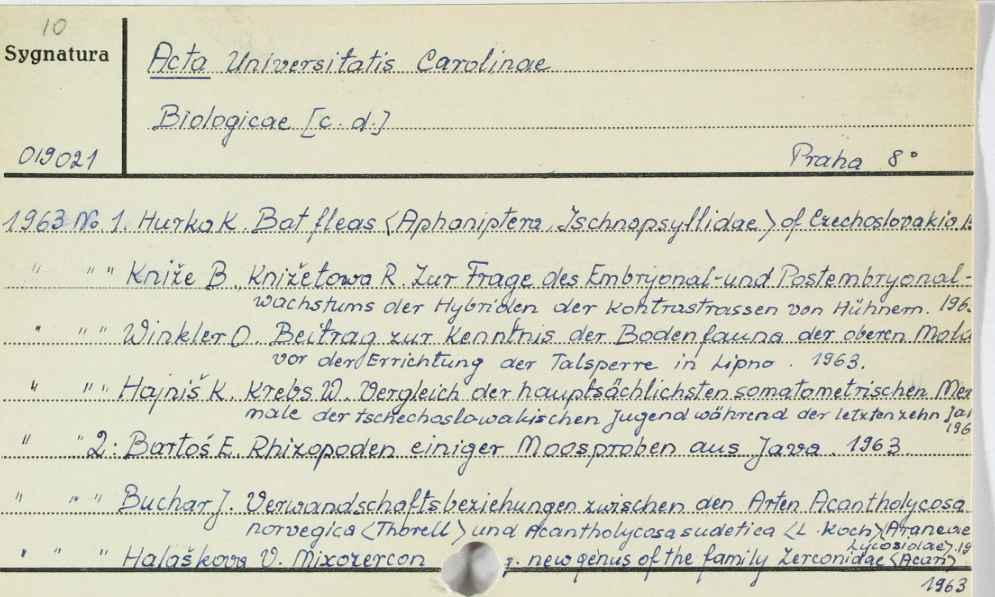 10
Sygnatura
Acta Universitatis Carolinae
Biologicae [c. d.]
019021
Praha 8°
1963 No. 1. Hurka K. Bat fleas <Aphaniptera, Ischnopsyllidae> of Czechoslovakia. 19
" " " Kniže B., Knižetowa R. Zur Frage des Embryonal- und Postembryonal-
wachstums der Hybriden der Kontrastrassen von Hühnern. 196
" " " Winkler O. Beitrag zur Kenntnis der Bodenfauna der oberen Molda
vor der Errichtung der Talsperre in Lipno. 1963.
" " " Hajniš K., Krebs W. Vergleich der hauptsächlichsten somatometrischen Mer
male der tschechoslowakischen Jugend während der letzten zehn Jah
196
" " 2: Bartoš E. Rhizopoden einiger Moosproben aus Java. 1963
" " " Buchar J. Verwandschaftsbeziehungen zwischen den Arten Acantholycosa
norvegica <Thorell> und Acantholycosa sudetica <L. Koch> <Araneae
Lycosidae>. 19
" " " Halaškova V. Mixozercon g. new genus of the family Zerconidae <Acari>
1963